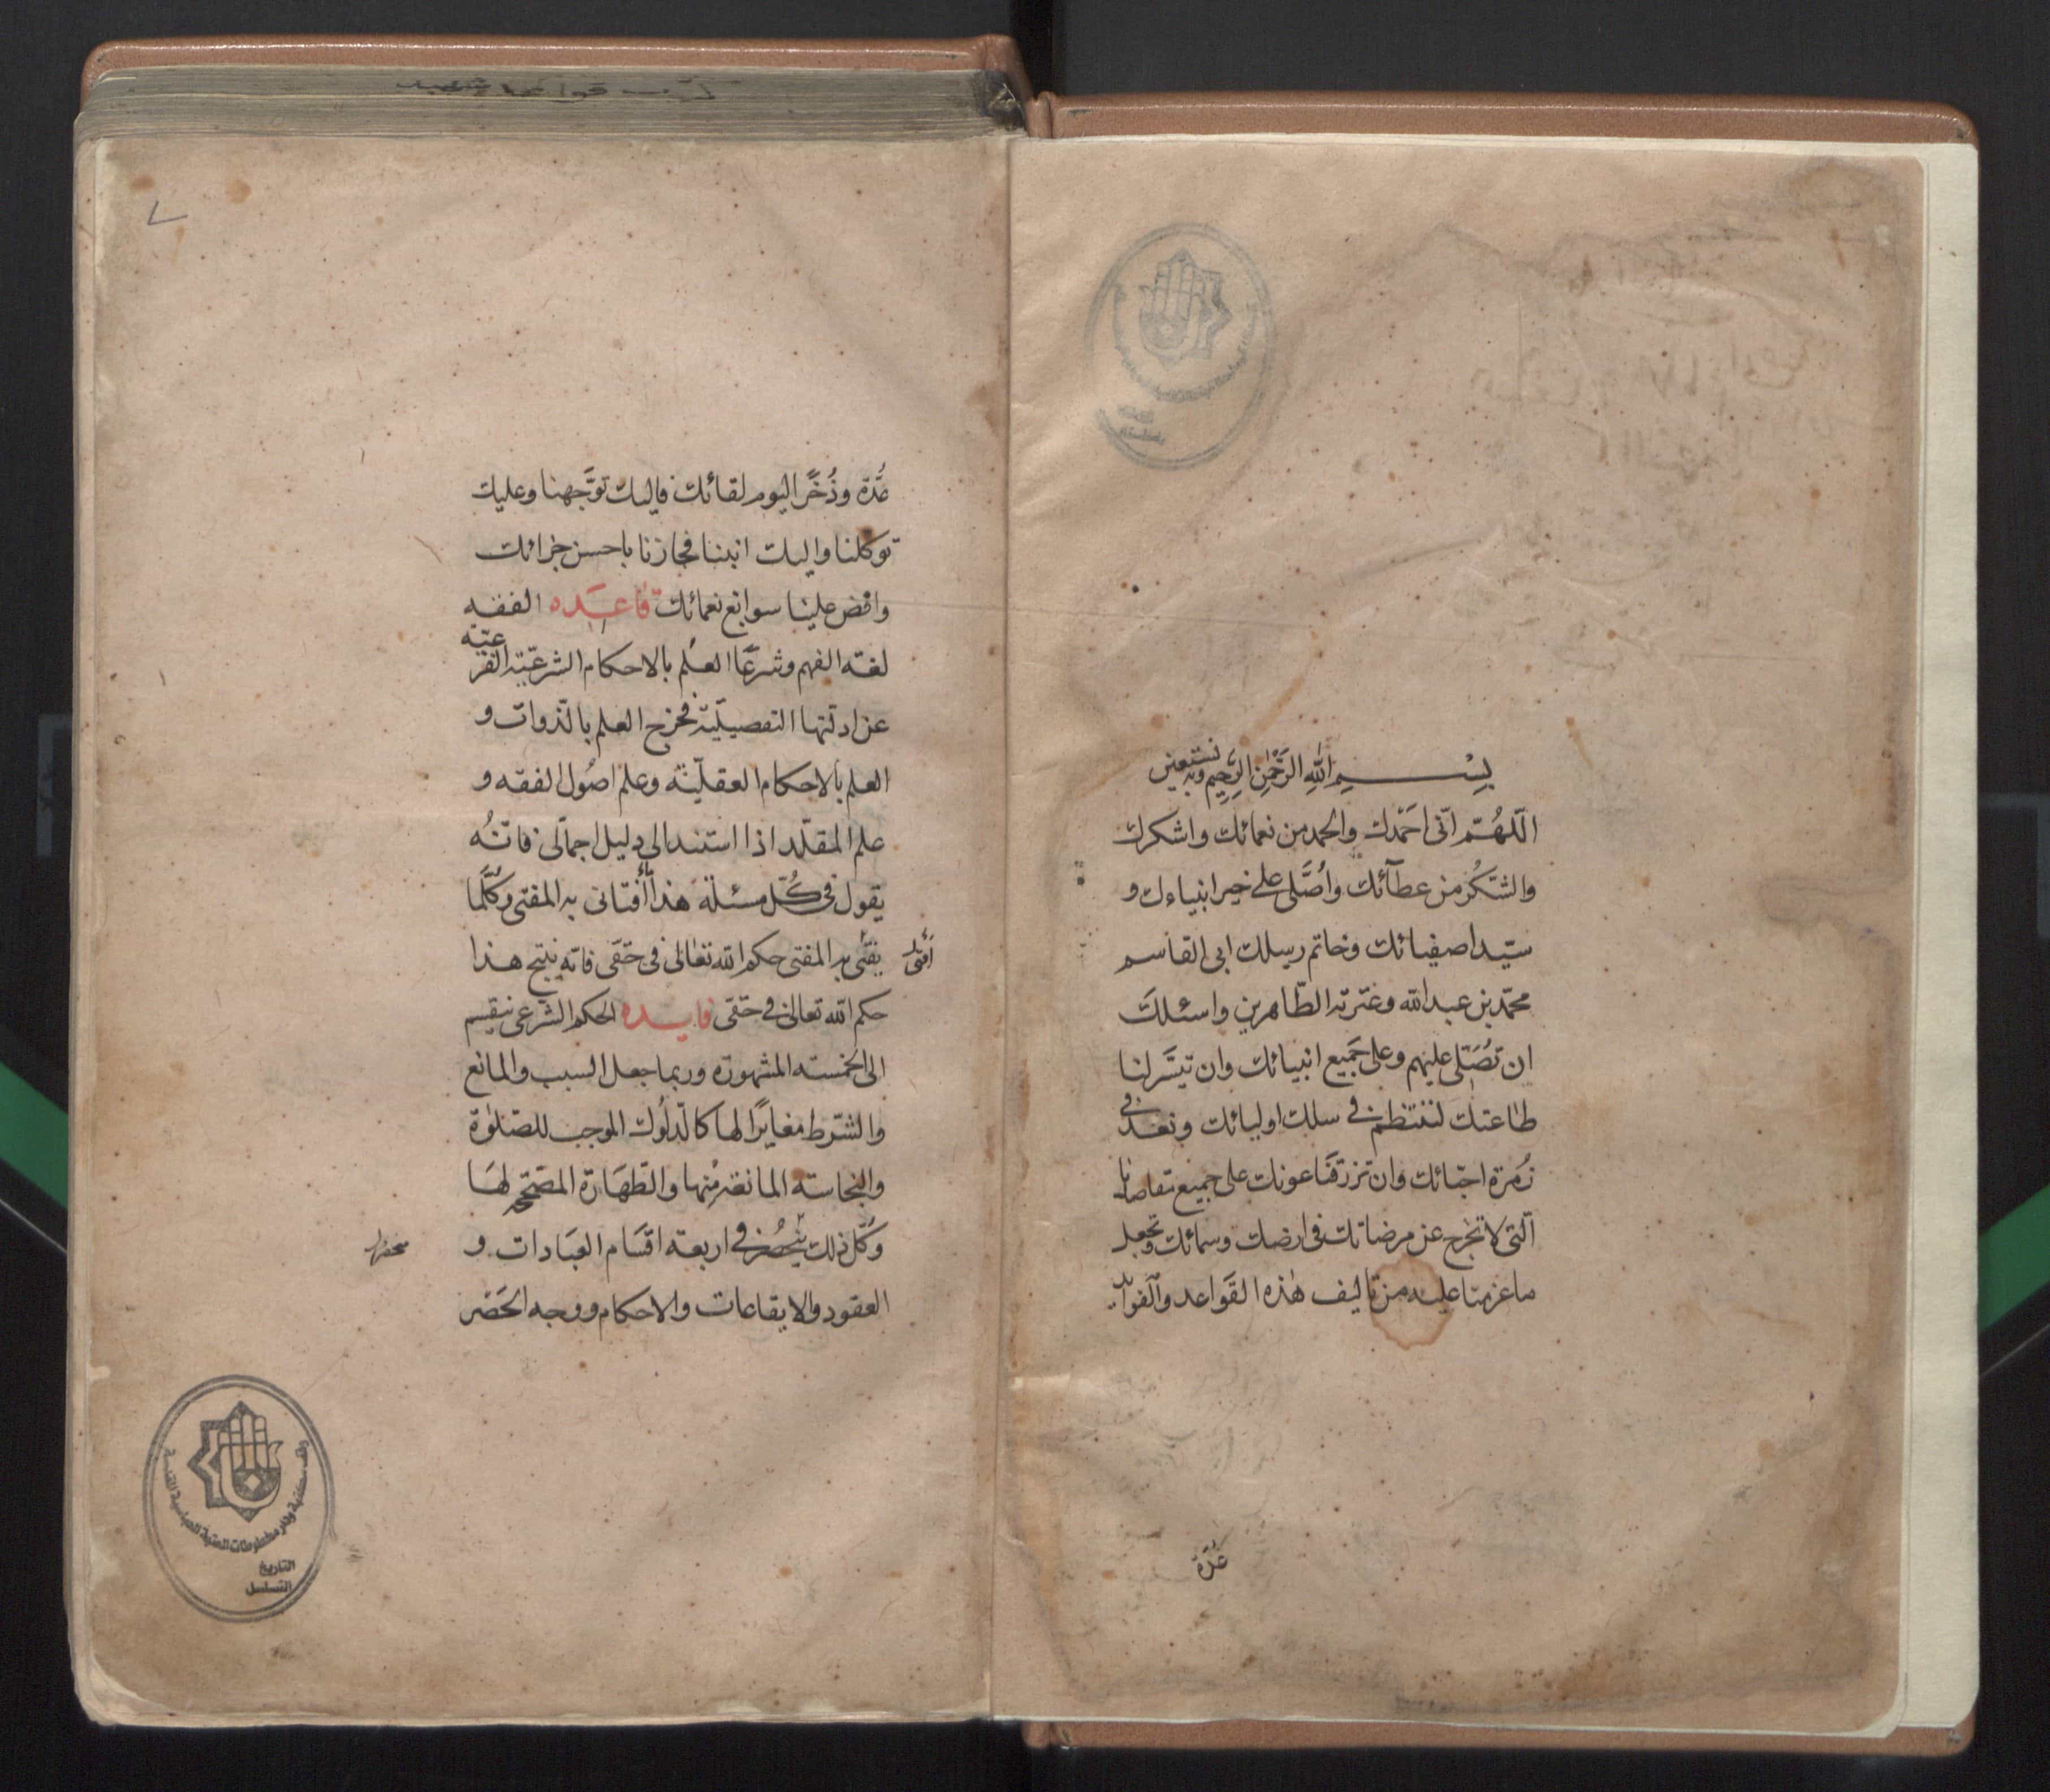 بِسْمِ اللهِ الرَّحْمٰنِ الرَّحِيمِ وبه نستعين
اللّهُمّ انّى احمَدك والحمد من نعمائك واشكرك
والشّكر من عطآئك واُصَلّى على خير انبياءك و
سيّد اصفيائك وخاتم رسلك ابى القاسم
محمّد بن عبد الله وعترته الطّاهرين واسئلك
ان تُصَلّى عليهم وعلى جَميع انبيائك وان تيسّر لنا
طاعتك لننتظم فى سلك اوليائك ونعد فى
زُمرة احبّائك وان ترزقنا عونك على جميع تقاصانا
الّتى لا تخرج عن مرضاتك فى ارضك وسمائك وتجعل
ما عزمنا عليه من تاليف هٰذه القَواعد والفوائد
عُدّة
عُدّة وذُخرًا ليوم لقائك فاليك توَجّهنا وعليك
توكّلنا واليك انبنا فجازنا باحسن جزائك
وافض علينا سوابغ نعمائك قاعَده الفقه
لغة الفهم وشرعًا العلم بالاحكام الشرعيّة الفرعيّة
عن ادلّتها التفصيليّة فخرج العلم بالذّوات و
العلم بالاحكام العقليّة وعلم اصُول الفقه و
علم المقلّد اذا استند الى دليل اجمالى فانّه
يقول فى كُلّ مسئلة هذا أفتانى به المفتى وكُلّما
يفتى به المفتى حكم الله تعالى فى حقّى فانّه ينتج هذا
أفتى
حكم الله تعالى فى حقّى فايده الحكم الشرعى ينقسم
الى الخمسة المشهورة وربما جعل السبب والمانع
والشّرط مغايرًا لها كالدّلوك الموجب للصّلوة
والنجاسة المانعة منها والطّهَارة المصحّحه لهَا
وكلّ ذلك ينحصر فى اربعة اقسَام العبَادات و
العقود والايقاعات والاحكام ووجه الحَصْر
التاريخ
التسلسل